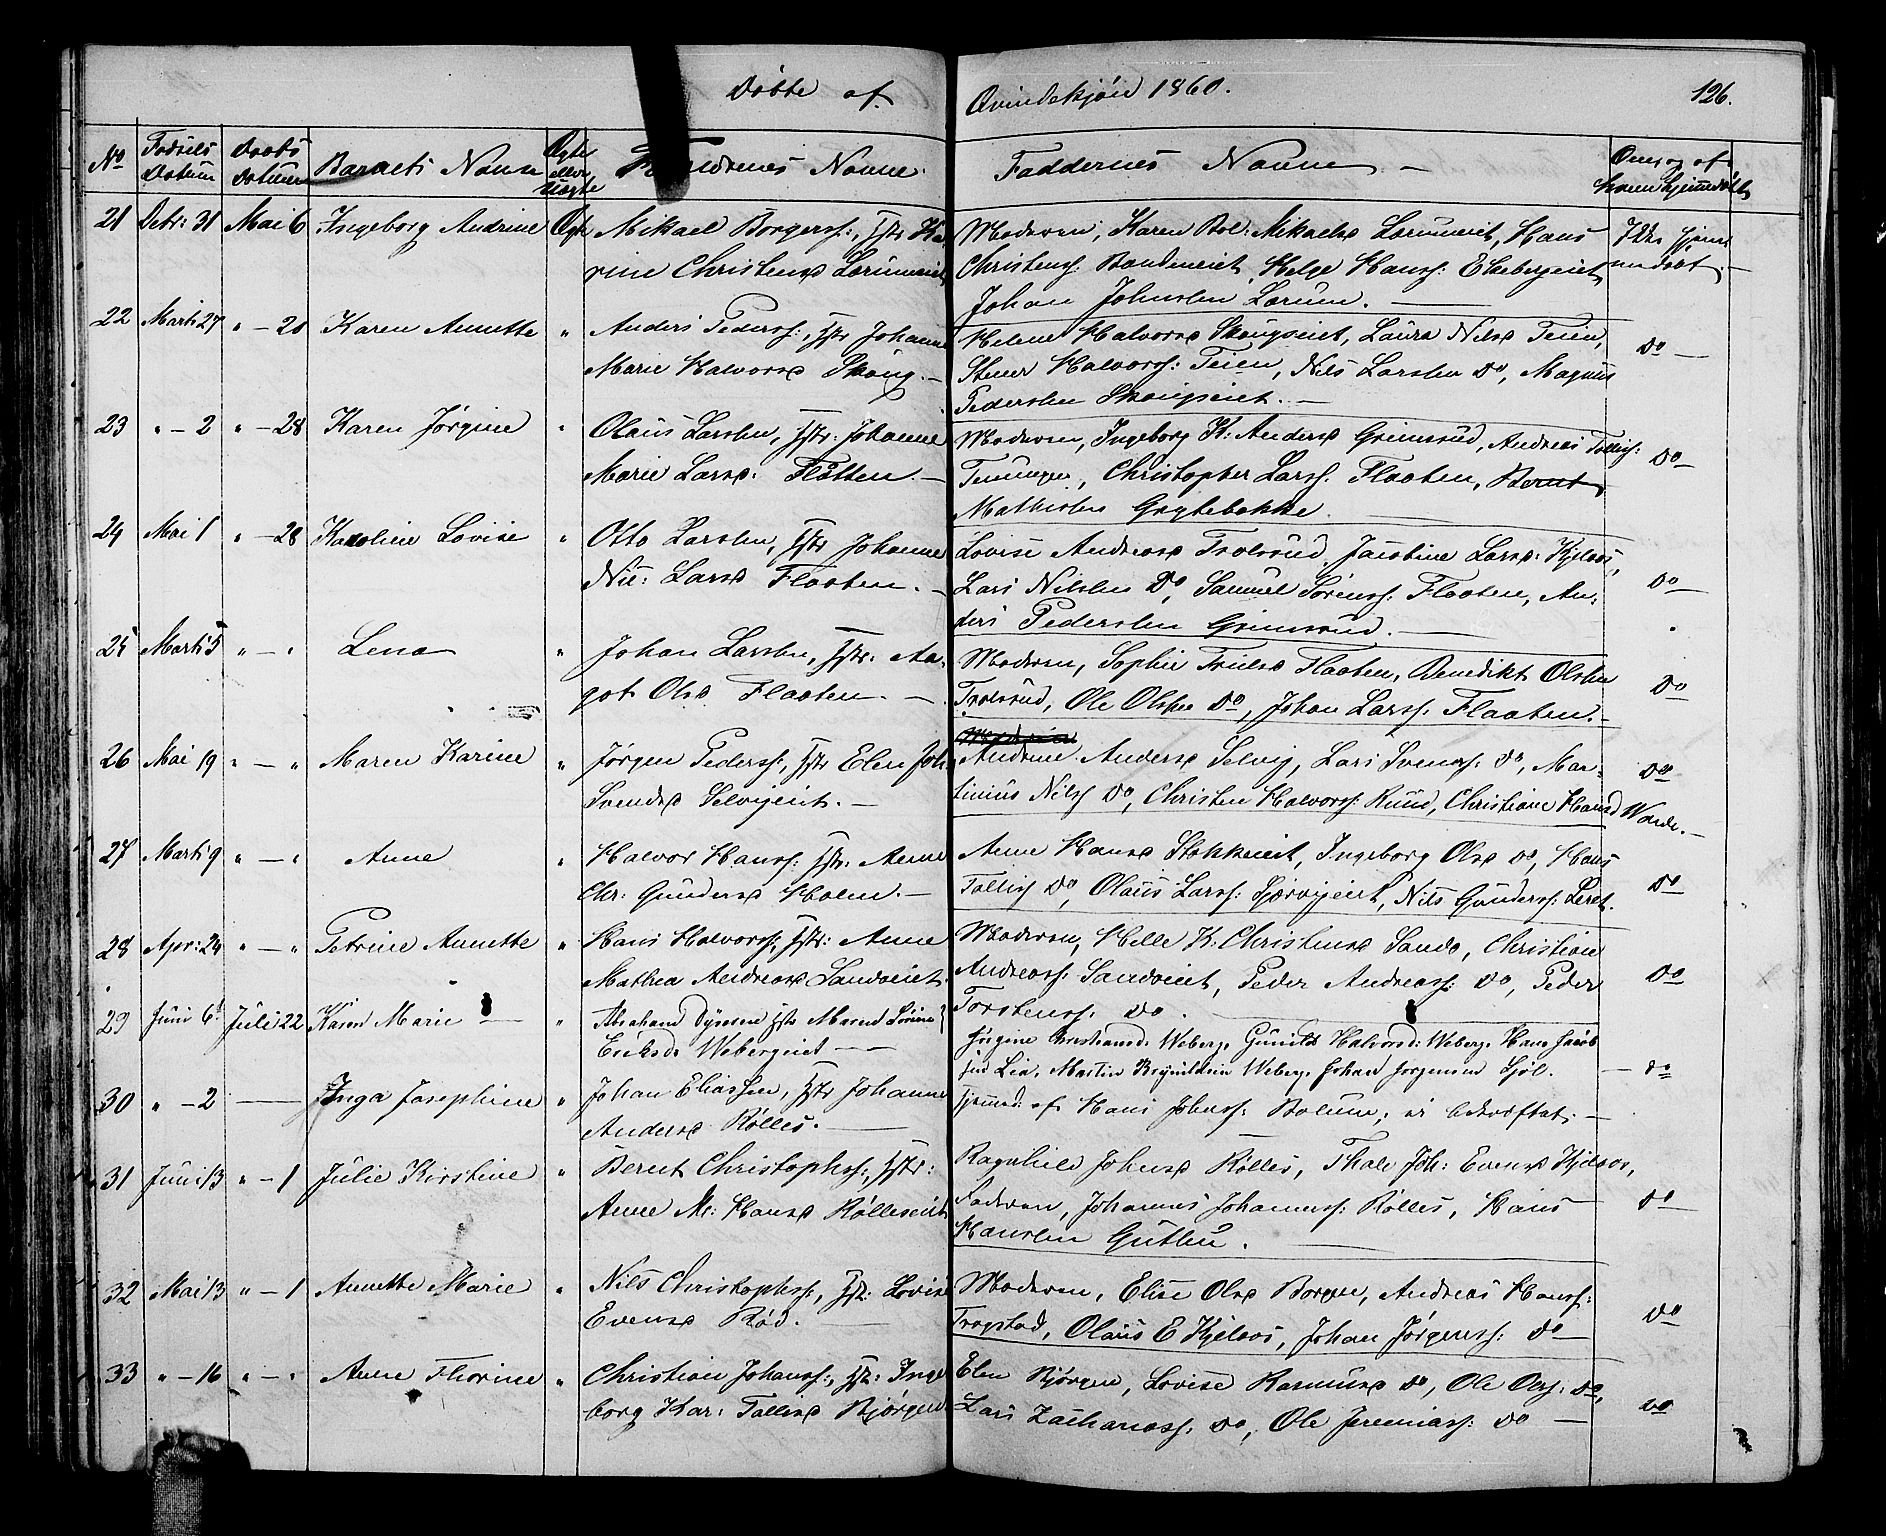 Døbte af Qvindekjøn 1860. 126.
No Fødsels Datum Daabs Datum Barnets Navn Ægte eller Uægte Forældrenes Navne. Faddernes Navne — Om og af hvem hjemmedøbt
21 Mai 6 Ingeborg Andrine Ægte Mikael Borgerss:, Hstr Ka
rine Christensd
Moderen, Karen Bol: Mikaelsd Hans
Christenss: Helge Hanss:
Johan Johnsen Lærum. —
Ikke hjem
medøbt. —
22 Marti 27 " — 28 Karen Annette " Anders Pederss:, Hstr Johanne
Marie Halvorsd Skoug. —
Helene Halvorsd Skougseiet, Laura Nilsd Teien,
Halvorss: Teien, Nils Larsen Do, Magnus
Pedersen Skougseiet. —
Do —
23 " — 2 " — 28 Karen Jørgine " Olaus Larsen, Hstr: Johanne
Marie Larsd: Flåtten. —
Moderen, Ingeborg K: Andersd Grimsrud, Andreas Tolliss:
Christopher Larss. Flaaten, Bernt
Mathisen Grytebekke.
Do —
24 Mai 1 " — 28 Karoline Lovise " Otto Larsen, Hstr Johanne
Nic: Larsd Flaaten. —
Lovise Andreasd Trolsrud, Jacobine Larsd: Kjelaas,
Lars Nilsen Do, Samuel Sørenss: Flaaten, An-
ders Pedersen Grimsrud. —
Do —
25 Marti 5 " — " Lena " Johan Larsen, Hstr: Aa-
got Olsd Flaaten. —
Moderen, Sophie Truelsd Flaaten, Benedikt Olsen
Trolsrud, Ole Olsen Do, Johan Larss: Flaaten. —
Do
26 Mai 19 " — " Maren Karine " Jørgen Pederss:, Hstr Elen Joh:
Svendsd Selvigeiet. —
Andrine Andersd Selvig, Lars Svenss: Do, Mar-
tinius Nilss Do, Christen Halvorss: Ruud, Christiane Hansd
Do
27 Marti 9 " — " Anne " Halvor Hanss: Hstr: Anne
Chr: Gundersd Holm. —
Anne Hansd Stokkeeiet, Ingeborg Olsd Do, Hans
Tolliss Do, Olaus Larss: Nils Gunderss:
Do
28 Apr: 24 " — " Petrine Annette " Hans Halvorss:, Hstr: Anne
Mathea Andreasd Sandoeiet.
Moderen, Helle K: Christensd Sando, Christian
Andreass: Sandoeiet, Peder Andreass: Do, Peder
Torstenss: Do.
Do
29 Juni 6 Juli 22 Karen Marie — " Abraham Maren Lovine
Eriksd: Webergeiet —
Jørgine Christiansd: Weberg, Gunild Halvorsd: Weberg, Hans Jacob
sen Lia, Martin Weberg, Johan Jørgensen Sjøl.
— do
30 " — 2 — Inga Josephine " Johan Eliassen, Hstr Johanne
Andersd Rølles. —
Hjemmed: af Hans Johnss: Bolum; ei bekræftet. —
31 Juni 13 " — 1 Julie Kirstine " Bernt Christophss:, Hstr:
Anne M: Hansd Rølleseiet
Ragnhild Johnsd Rølles, Thale Joh: Evensd Kjelaas,
Faderen, Johannes Johanness: Rølles, Hans
Hansen Gutu. —
Do
32 Mai 13 " — 1 Annette Marie " Nils Christophss:, Hstr: Lovise
Evensd Rød. —
Moderen, Elise Olsd Borgen, Andreas Hanss:
Trogstad, Olaus E Kjelaas, Johan Jørgenss: Do
Do
33 " — 16 " — " Anne Thorine " Christian Johanss:, Hstr: Inge
borg Kar: Tollisd Bjørgen.
Elen Bjørgen, Lovise Rasmusd Do, Ole Olss: Do,
Lars Zachariass: Do, Ole Jeremiass: Do —
Do